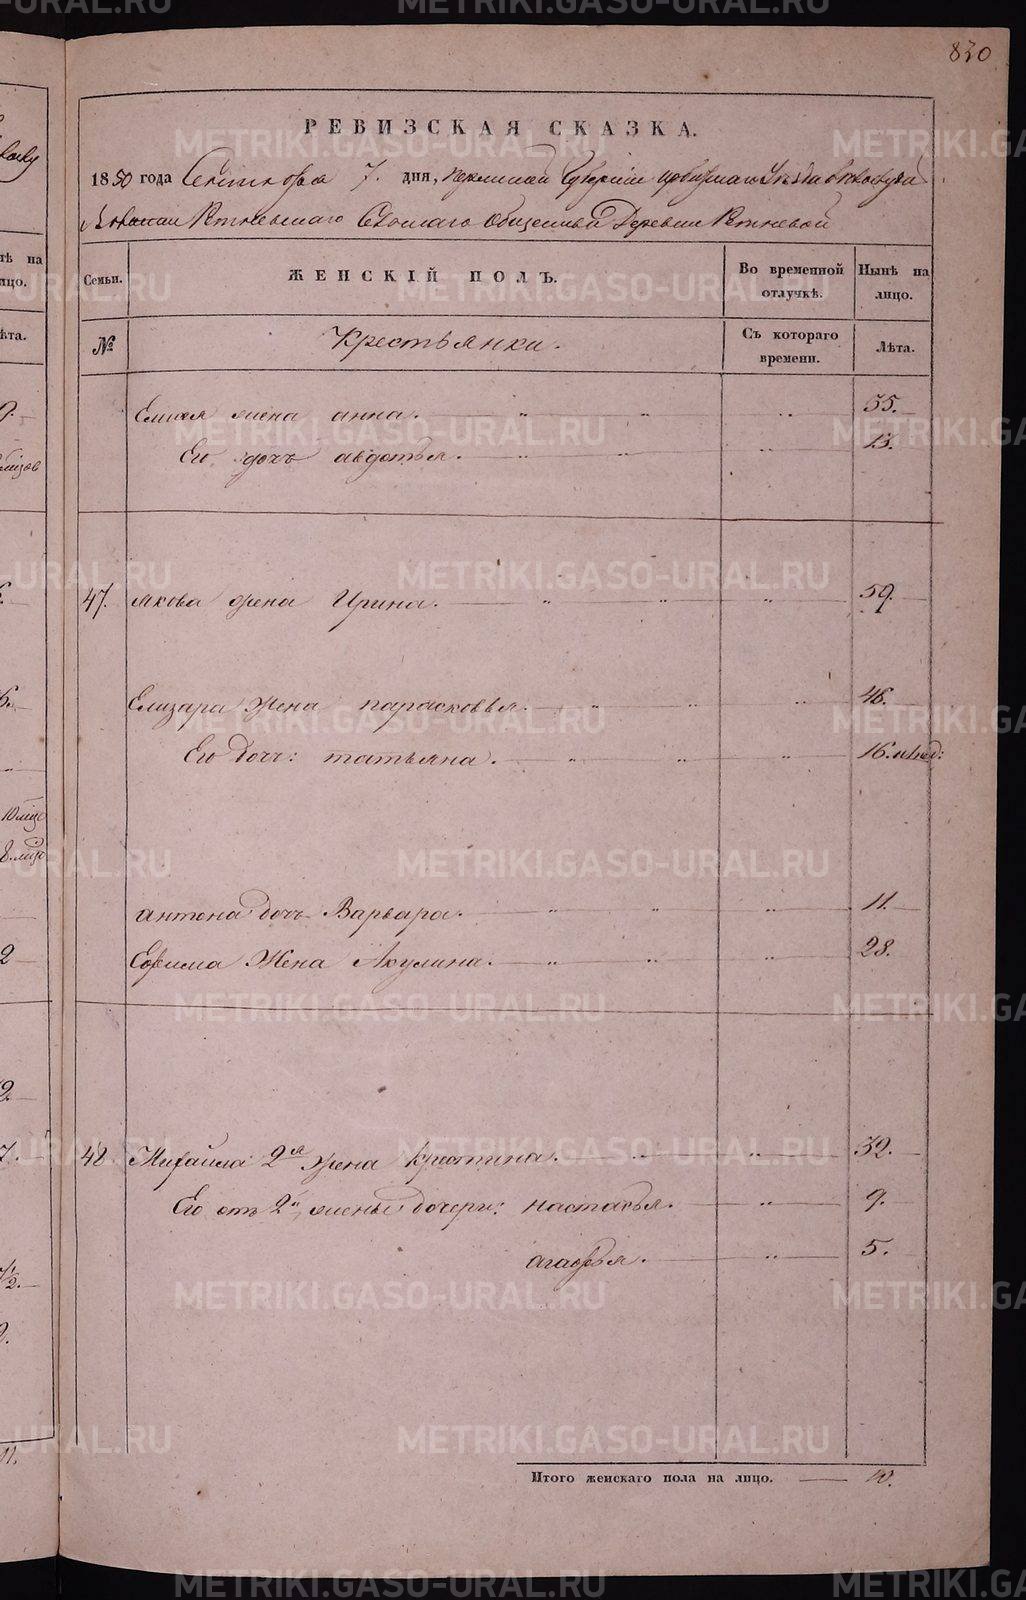 830
РЕВИЗСКАЯ СКАЗКА.
1850 года Сентября 7. дня, Пермской Губернии Ирбитскаго Уезда
Сельскаго Общества Деревни
Семьи. ЖЕНСКІЙ ПОЛЪ. Во временной отлучкѣ. Нынѣ на лицо.
№ Крестьянки. Съ котораго времени. Лѣта.
жена анна. 35.
Его дочь авдотья. 13.
47. якова жена Ирина. 59.
Елизара жена парасковья. 46.
Его дочь: татьяна. 16.
антона дочь Варвара. 11.
Ефима Жена Акулина. 28.
48. Михаила 2я жена Крестина. 32.
Его отъ 2й жены дочери: настасья. 9.
агафья. 5.
Итого женскаго пола на лицо. 10.
METRIKI.GASO-URAL.RU